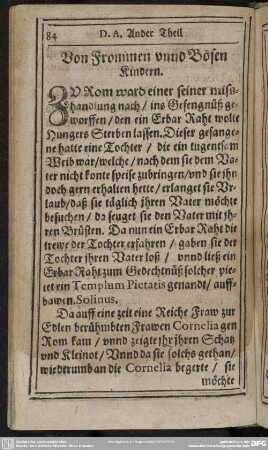 84 D. A. Ander Theil
Von Frommen vnnd Bösen
Kindern.
ZV Rom ward einer seiner mitß-
handlung nach / ins Gefengnüß ge-
worffen / den ein Erbar Raht wolte
Hungers Sterben lassen. Dieser gefange-
ne hatte eine Tochter / die ein tugentsam
Weib war / welche / nach dem sie dem Va-
ter nicht konte speise zubringen / vnd sie jhn
doch gern erhalten hette / erlanget sie Vr-
laub / daß sie täglich jhren Vater möchte
besuchen / da seuget sie den Vater mit jh-
ren Brüsten. Da nun ein Erbar Raht die
trewe der Tochter erfahren / gaben sie der
Tochter jhren Vater loß / vnnd ließ ein
Erbar Raht zum Gedechtnüß solcher pie-
tet ein Templum Pietatis genandt / auff-
bawen. Solinus.
Da auff eine zeit eine Reiche Fraw zur
Edlen berühmbten Frawen Cornelia gen
Rom kam / vnnd zeigte jhr jhren Schatz
vnd Kleinot / Vnnd da sie solchs gethan /
wiederumb an die Cornelia begerte / sie
möchte